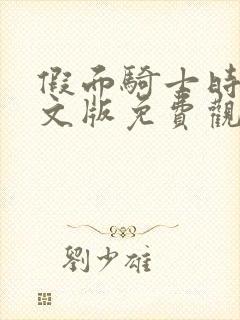 假面騎士時
文版免費觀
劉少雄